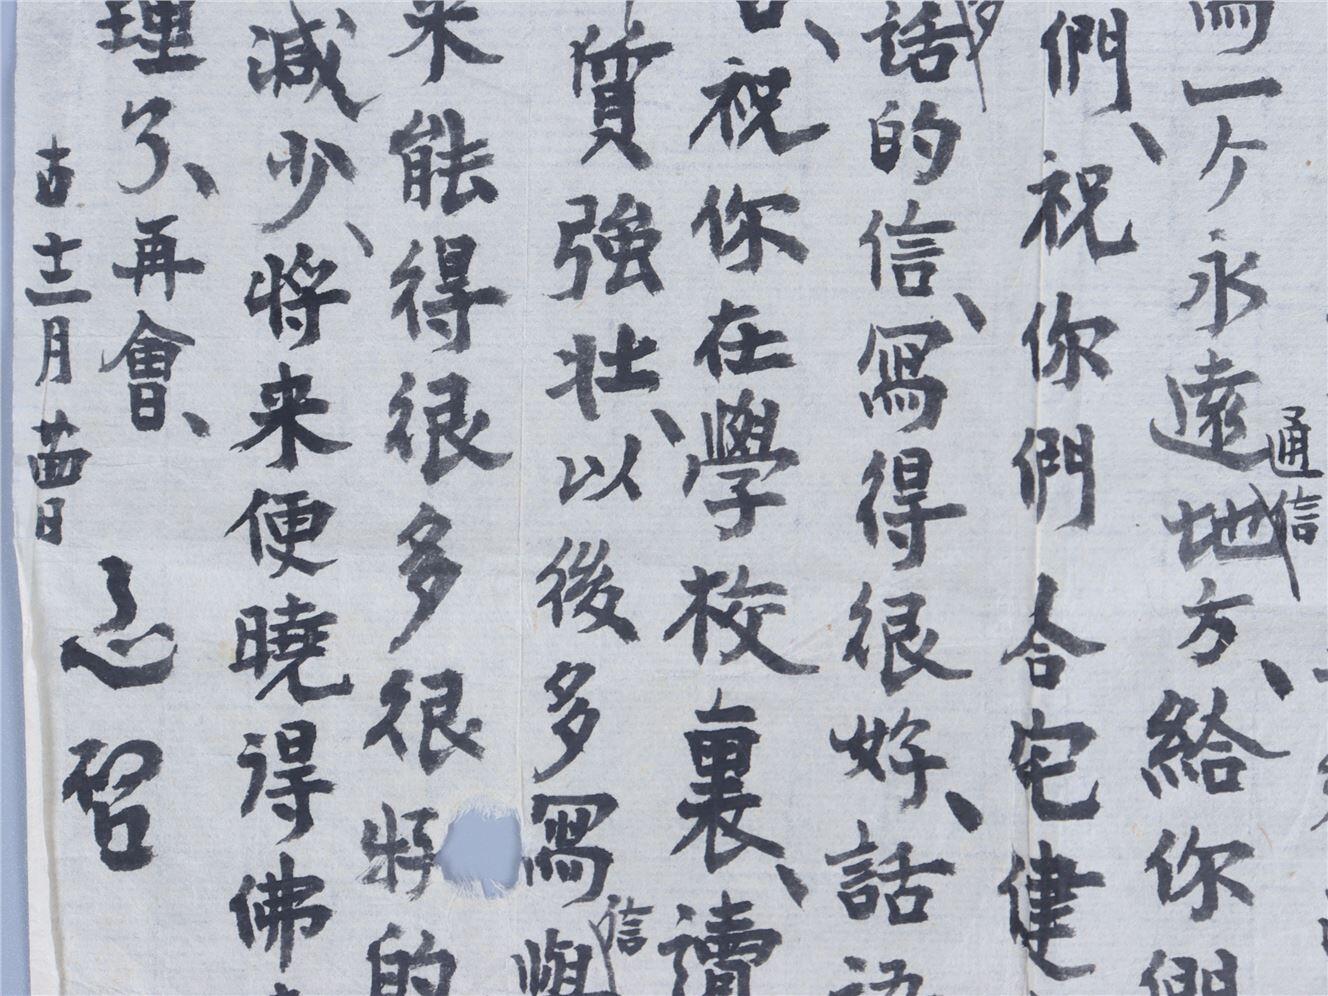 寫一ケ永遠地方、給你們
通信
們、祝你們合宅健
話的信、寫得很好、話語
祝你在學校裏、讀
質強壯、以後多寫
信
来能得很多很好的
減少、将来便曉得佛
理了、再會、
古十二月廿四日